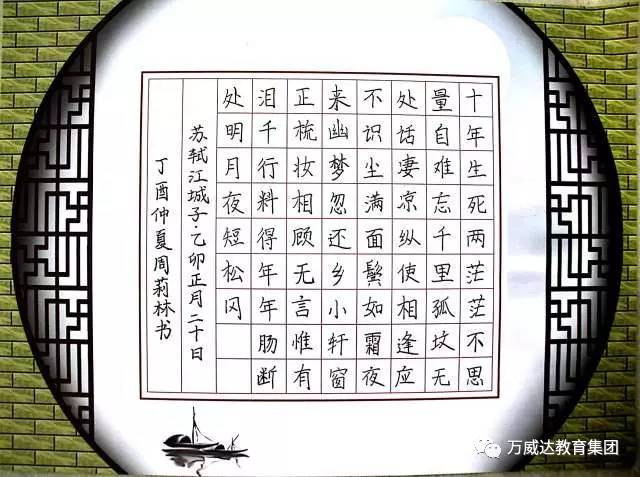 十年生死两茫茫不思
量自难忘千里孤坟无
处话凄凉纵使相逢应
不识尘满面鬓如霜夜
来幽梦忽还乡小轩窗
正梳妆相顾无言惟有
泪千行料得年年肠断
处明月夜短松冈
苏轼江城子·乙卯正月二十日
丁酉仲夏周莉林书
万威达教育集团